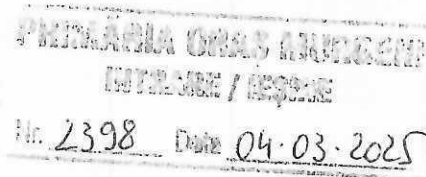 PRIMĂRIA ORAȘ MURGENI
INTRARE / IEȘIRE
Nr. 2398 Data 04.03.2025